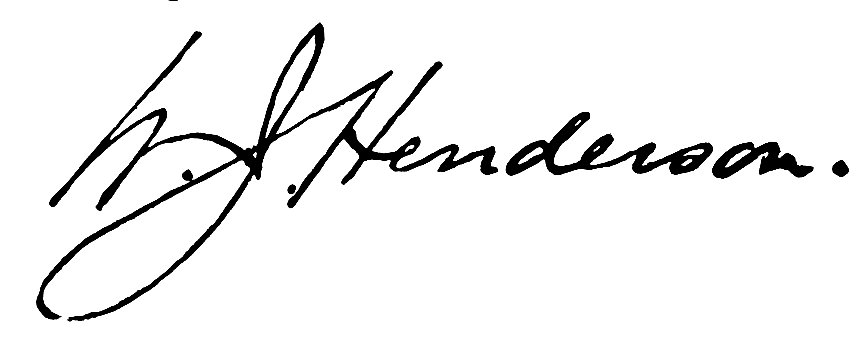 W. J. Henderson.